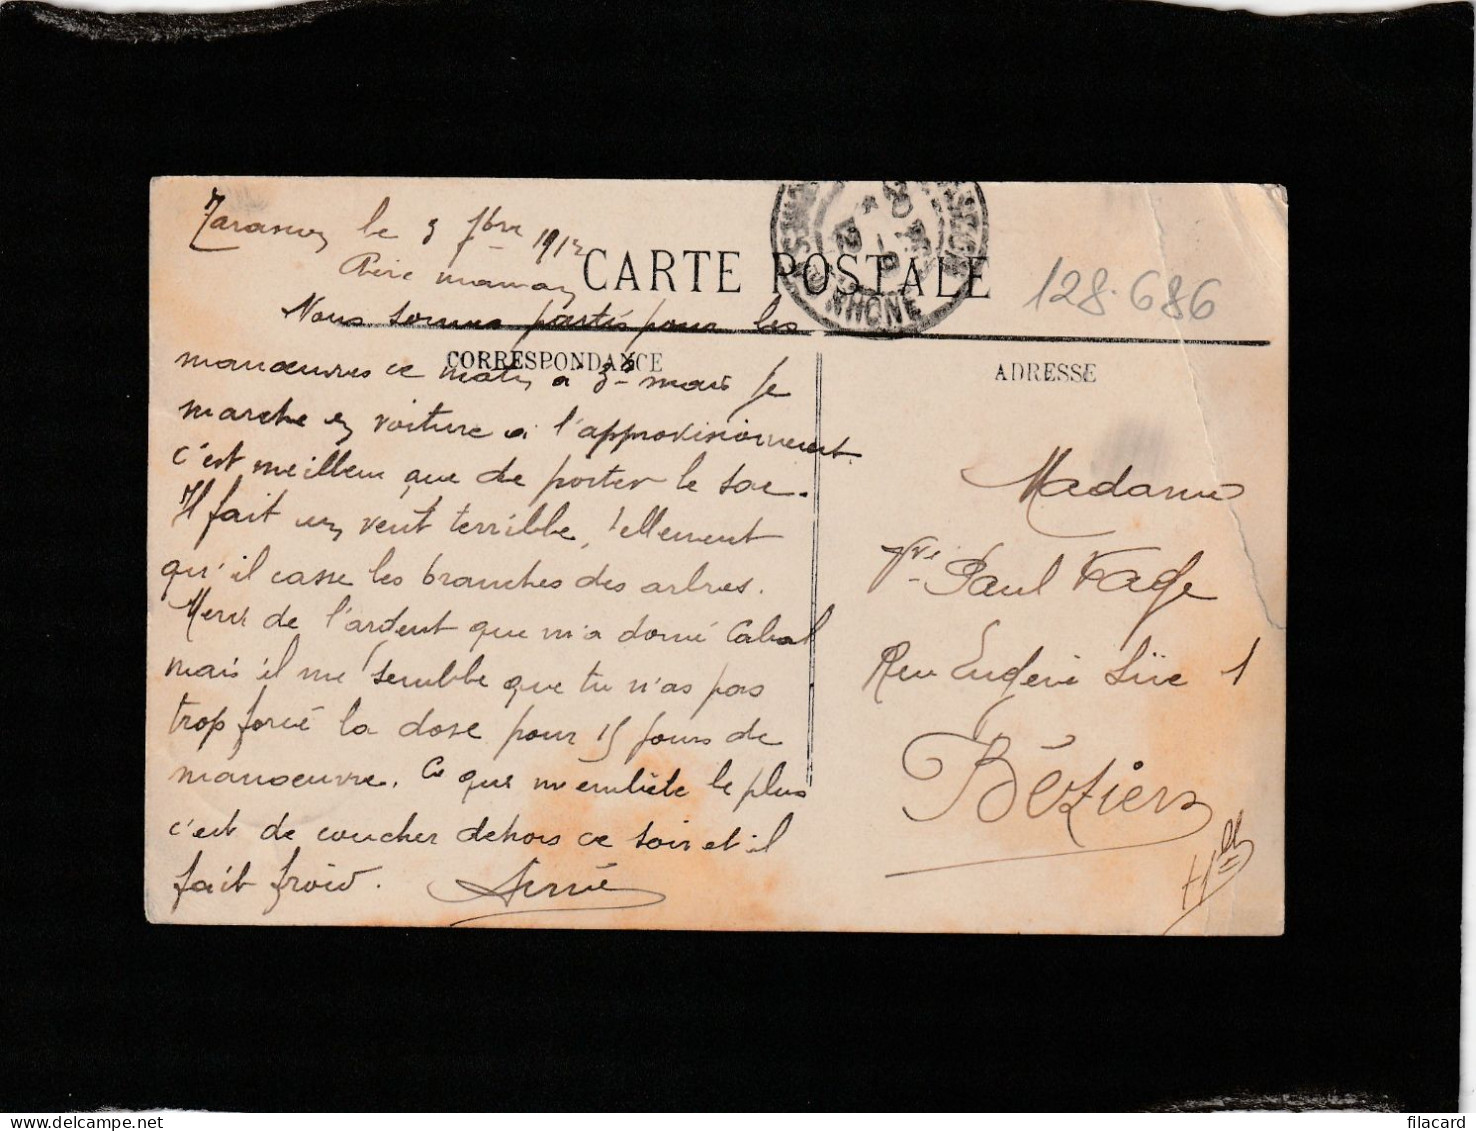 Tarascon le 3 7bre 1912
maman
CARTE POSTALE
RHÔNE
128.686
Nous sommes partis pour les
CORRESPONDANCE
ADRESSE
manœuvres ce matin à 3h mais je
marche en voiture à l'approvisionnement.
c'est meilleur que de porter le sac.
Il fait un vent terrible, tellement
qu'il casse les branches des arbres.
Merci de l'argent que m'a donné Cabal
mais il me semble que tu n'as pas
trop forcé la dose pour 15 jours de
manœuvre. Ce qui m'embête le plus
c'est de coucher dehors ce soir et il
fait froid.
Madame
Vve Paul Fage
Rue Eugène Süe 1
Béziers
Hlt
filacard